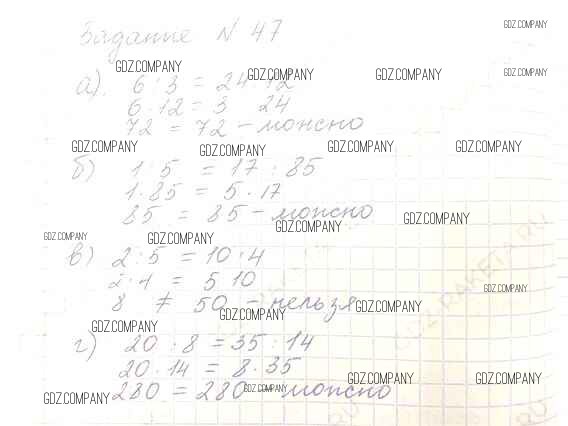 Задание N 47
GDZ.COMPANY
GDZ.COMPANY GDZ.COMPANY GDZ.COMPANY GDZ.COMPANY
а). 6 : 3 = 24 12
6 · 12 = 3 24
72 = 72 - можно
GDZ.COMPANY GDZ.COMPANY GDZ.COMPANY GDZ.COMPANY
б) 1 : 5 = 17 : 85
1 · 85 = 5 · 17
85 = 85 - можно
GDZ.COMPANY GDZ.COMPANY
GDZ.COMPANY GDZ.COMPANY
в) 2 : 5 = 10 : 4
2 · 4 = 5 10
8 ≠ 50 - нельзя
GDZ.COMPANY
GDZ.COMPANY GDZ.COMPANY
GDZ.COMPANY
г) 20 : 8 = 35 : 14
20 · 14 = 8 · 35
280 = 280 можно
GDZ.COMPANY GDZ.COMPANY GDZ.COMPANY GDZ.COMPANY
GDZ.RAKETA.RU